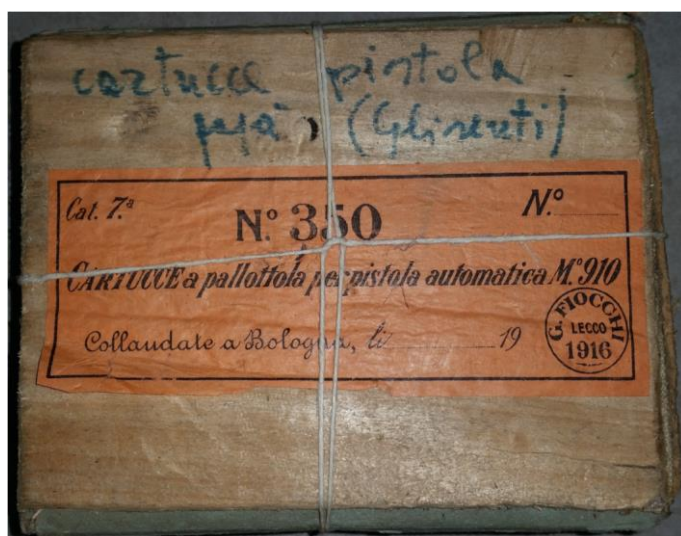 cartucce pistola
(Glisenti)
Cat. 7.ª
N.º 350
N.º
CARTUCCE a pallottola per pistola automatica M.º 910
Collaudate a Bologna, lì 19
G. FIOCCHI
LECCO
1916